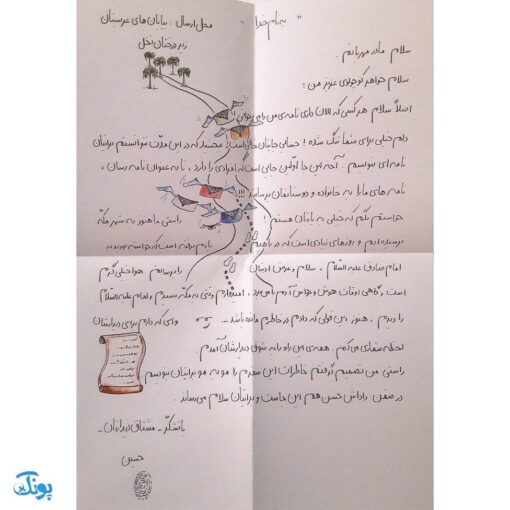 " به نام خدا "
محل ارسال : بیابان های عربستان
زیر درختان نخل
سلام مادر مهربانم.
سلام خواهر کوچولوی عزیز من !
اصلاً سلام هر کسی که الان داری نامه ی من را می خوانی !
دلم خیلی برای شما تنگ شده ! حسابی جایتان خالی است ! ببخشید که در این مدت نتوانستم برایتان
نامه ای بنویسم . آخه این جا اوّلین جایی است که افرادی را دارد ، تا به عنوان نامه رسان ،
نامه های ما را به خانواده و دوستانمان برسانند !!!
خواستم بگم که خیلی به یادتان هستم ! راستی ما هنوز به شهر مکّه
نرسیده ایم و روزهای زیادی است که در راهیم یادم نرفته است که خواسته بودید
امام صادق علیه السّلام ، سلام و عرض ادبتان را برسانم هوا خیلی گرم
است ، گاهی اوقات هوش و حواس آدم را می برد . امیدوارم وقتی به مکّه رسیدم و امام علیه السّلام
را دیدم ، هنوز این قولی که دادم در خاطرم مانده باشد ... وای که دارم برای دیدارشان
لحظه شماری می کنم . همه ی این راه را به شوق دیدارشان آمدم .
راستی من تصمیم گرفتم خاطرات این سفرم را مو به مو برایتان بنویسم
در ضمن داداش حسن هم این جاست و برایتان سلام می رساند .
با تشکّر - مشتاق دیدارتان -
حسین
پونک